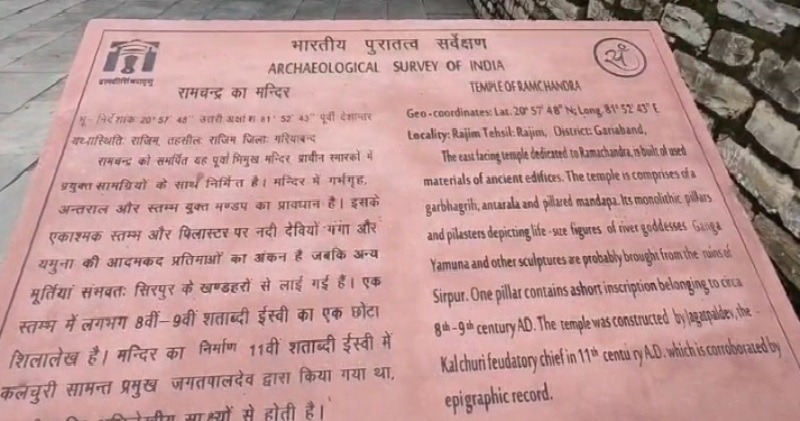 भारतीय पुरातत्व सर्वेक्षण
ARCHAEOLOGICAL SURVEY OF INDIA
रामचन्द्र का मन्दिर
भू-निर्देशांक 20° 57' 48" उत्तरी अक्षांश 81° 52' 43" पूर्वी देशान्तर
यथास्थिति: राजिम, तहसील: राजिम जिला: गरियाबन्द
रामचन्द्र को समर्पित यह पूर्वाभिमुख मन्दिर प्राचीन स्मारकों में
प्रयुक्त सामग्रियों के साथ निर्मित है। मन्दिर में गर्भगृह,
अन्तराल और स्तम्भ युक्त मण्डप का प्रावधान है। इसके
एकाश्मक स्तम्भ और पिलास्टर पर नदी देवियों गंगा और
यमुना की आदमकद प्रतिमाओं का अंकन है जबकि अन्य
मूर्तियां संभवतः सिरपुर के खण्डहरों से लाई गई हैं। एक
स्तम्भ में लगभग 8वीं-9वीं शताब्दी ईस्वी का एक छोटा
शिलालेख है। मन्दिर का निर्माण 11वीं शताब्दी ईस्वी में
कलचुरी सामन्त प्रमुख जगतपालदेव द्वारा किया गया था,
साक्ष्यों से होती है।
TEMPLE OF RAMCHANDRA
Geo-coordinates: Lat. 20° 57' 48" N; Long. 81° 52' 43" E
Locality: Rajim Tehsil: Rajim, District: Gariaband,
The east facing temple dedicated to Ramachandra, is built of used
materials of ancient edifices. The temple is comprises of a
garbhagrih, antarala and pillared mandapa. Its monolithic pillars
and pilasters depicting life-size figures of river goddesses Ganga
Yamuna and other sculptures are probably brought from the ruins of
Sirpur. One pillar contains ashort inscription belonging to circa
8th-9th century AD. The temple was constructed by Jagatpaldev, the
Kalchuri feudatory chief in 11th century A.D. which is corroborated by
epigraphic record.